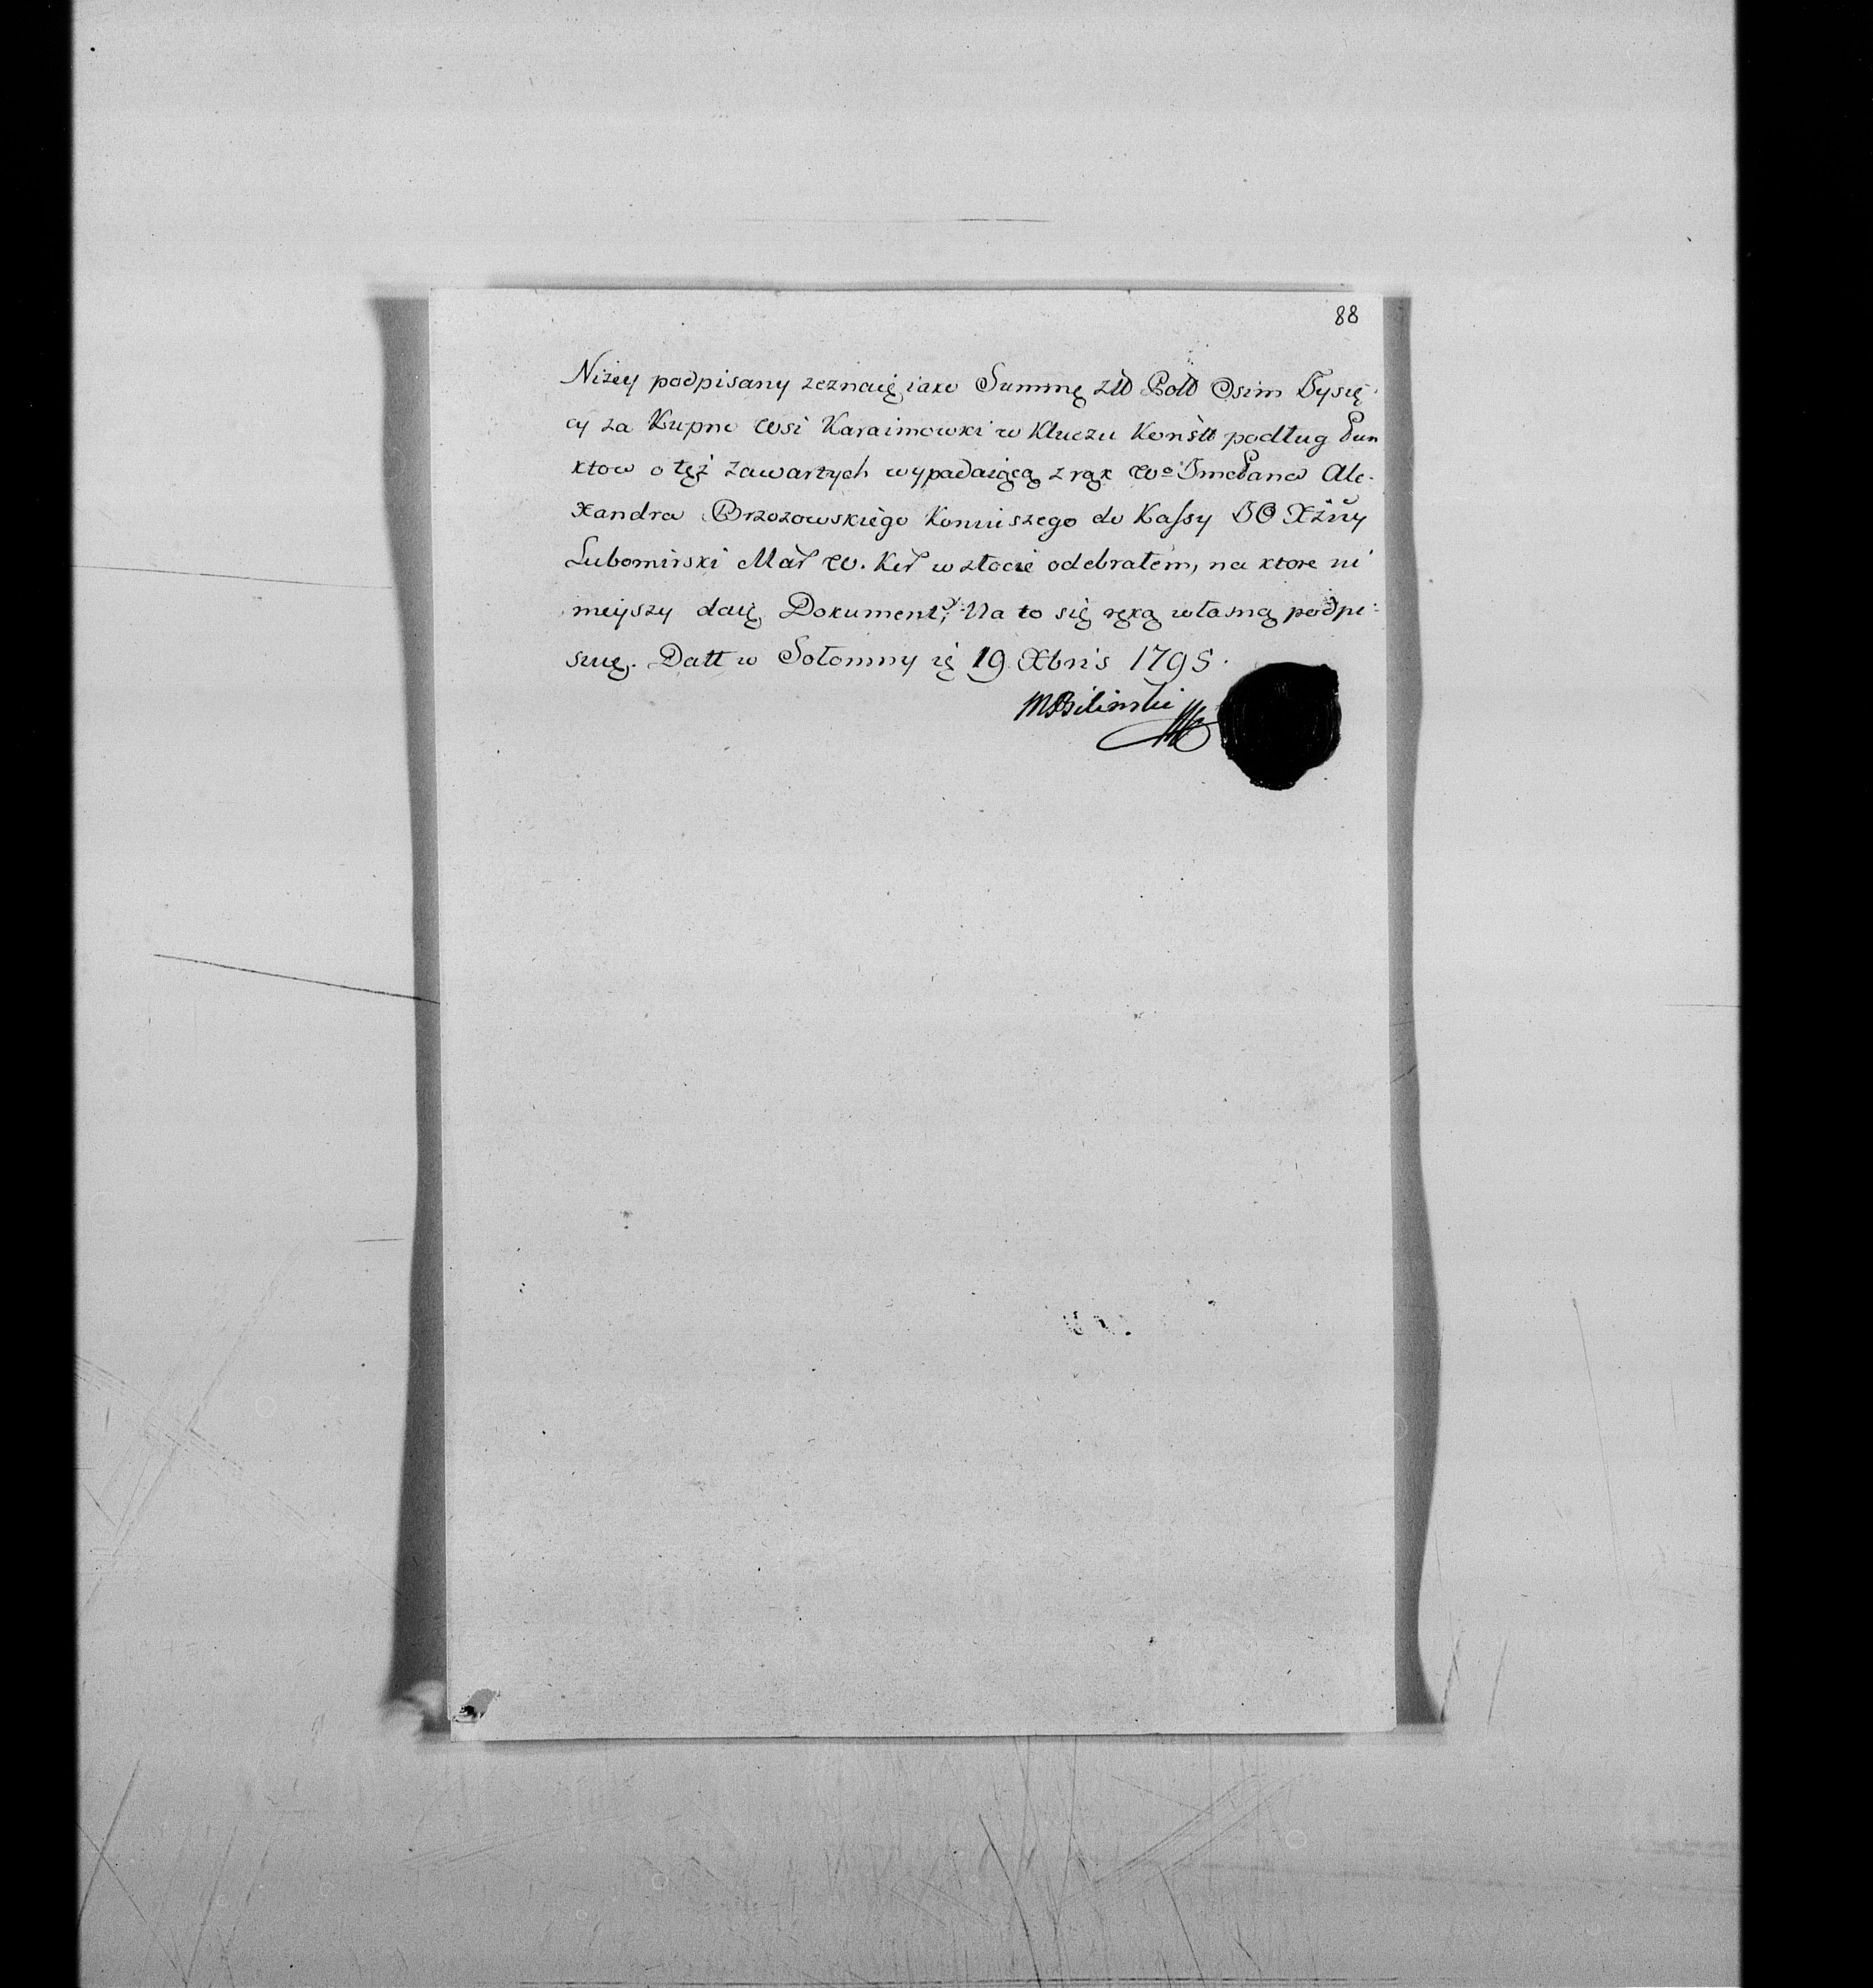 88
Niżey podpisany zeznaię iako Summę złł Poll Osim Tysię-
cy za Kupno Wsi Karaimowki w Kluczu Konstt podług Pun
ktow o tęż zawartych wypadaiącą z rąk Wo ImcPana Ale-
xandra Brzozowskiego Koniuszego do Kassy JO Xżny
Lubomirski Mar W. Kor w złocie odebrałem, na ktore ni
nieyszy daię Dokument, Na to się ręką własną podpi-
suię. Datt w Sołomny 19 Xbris 1795.
MBilinski